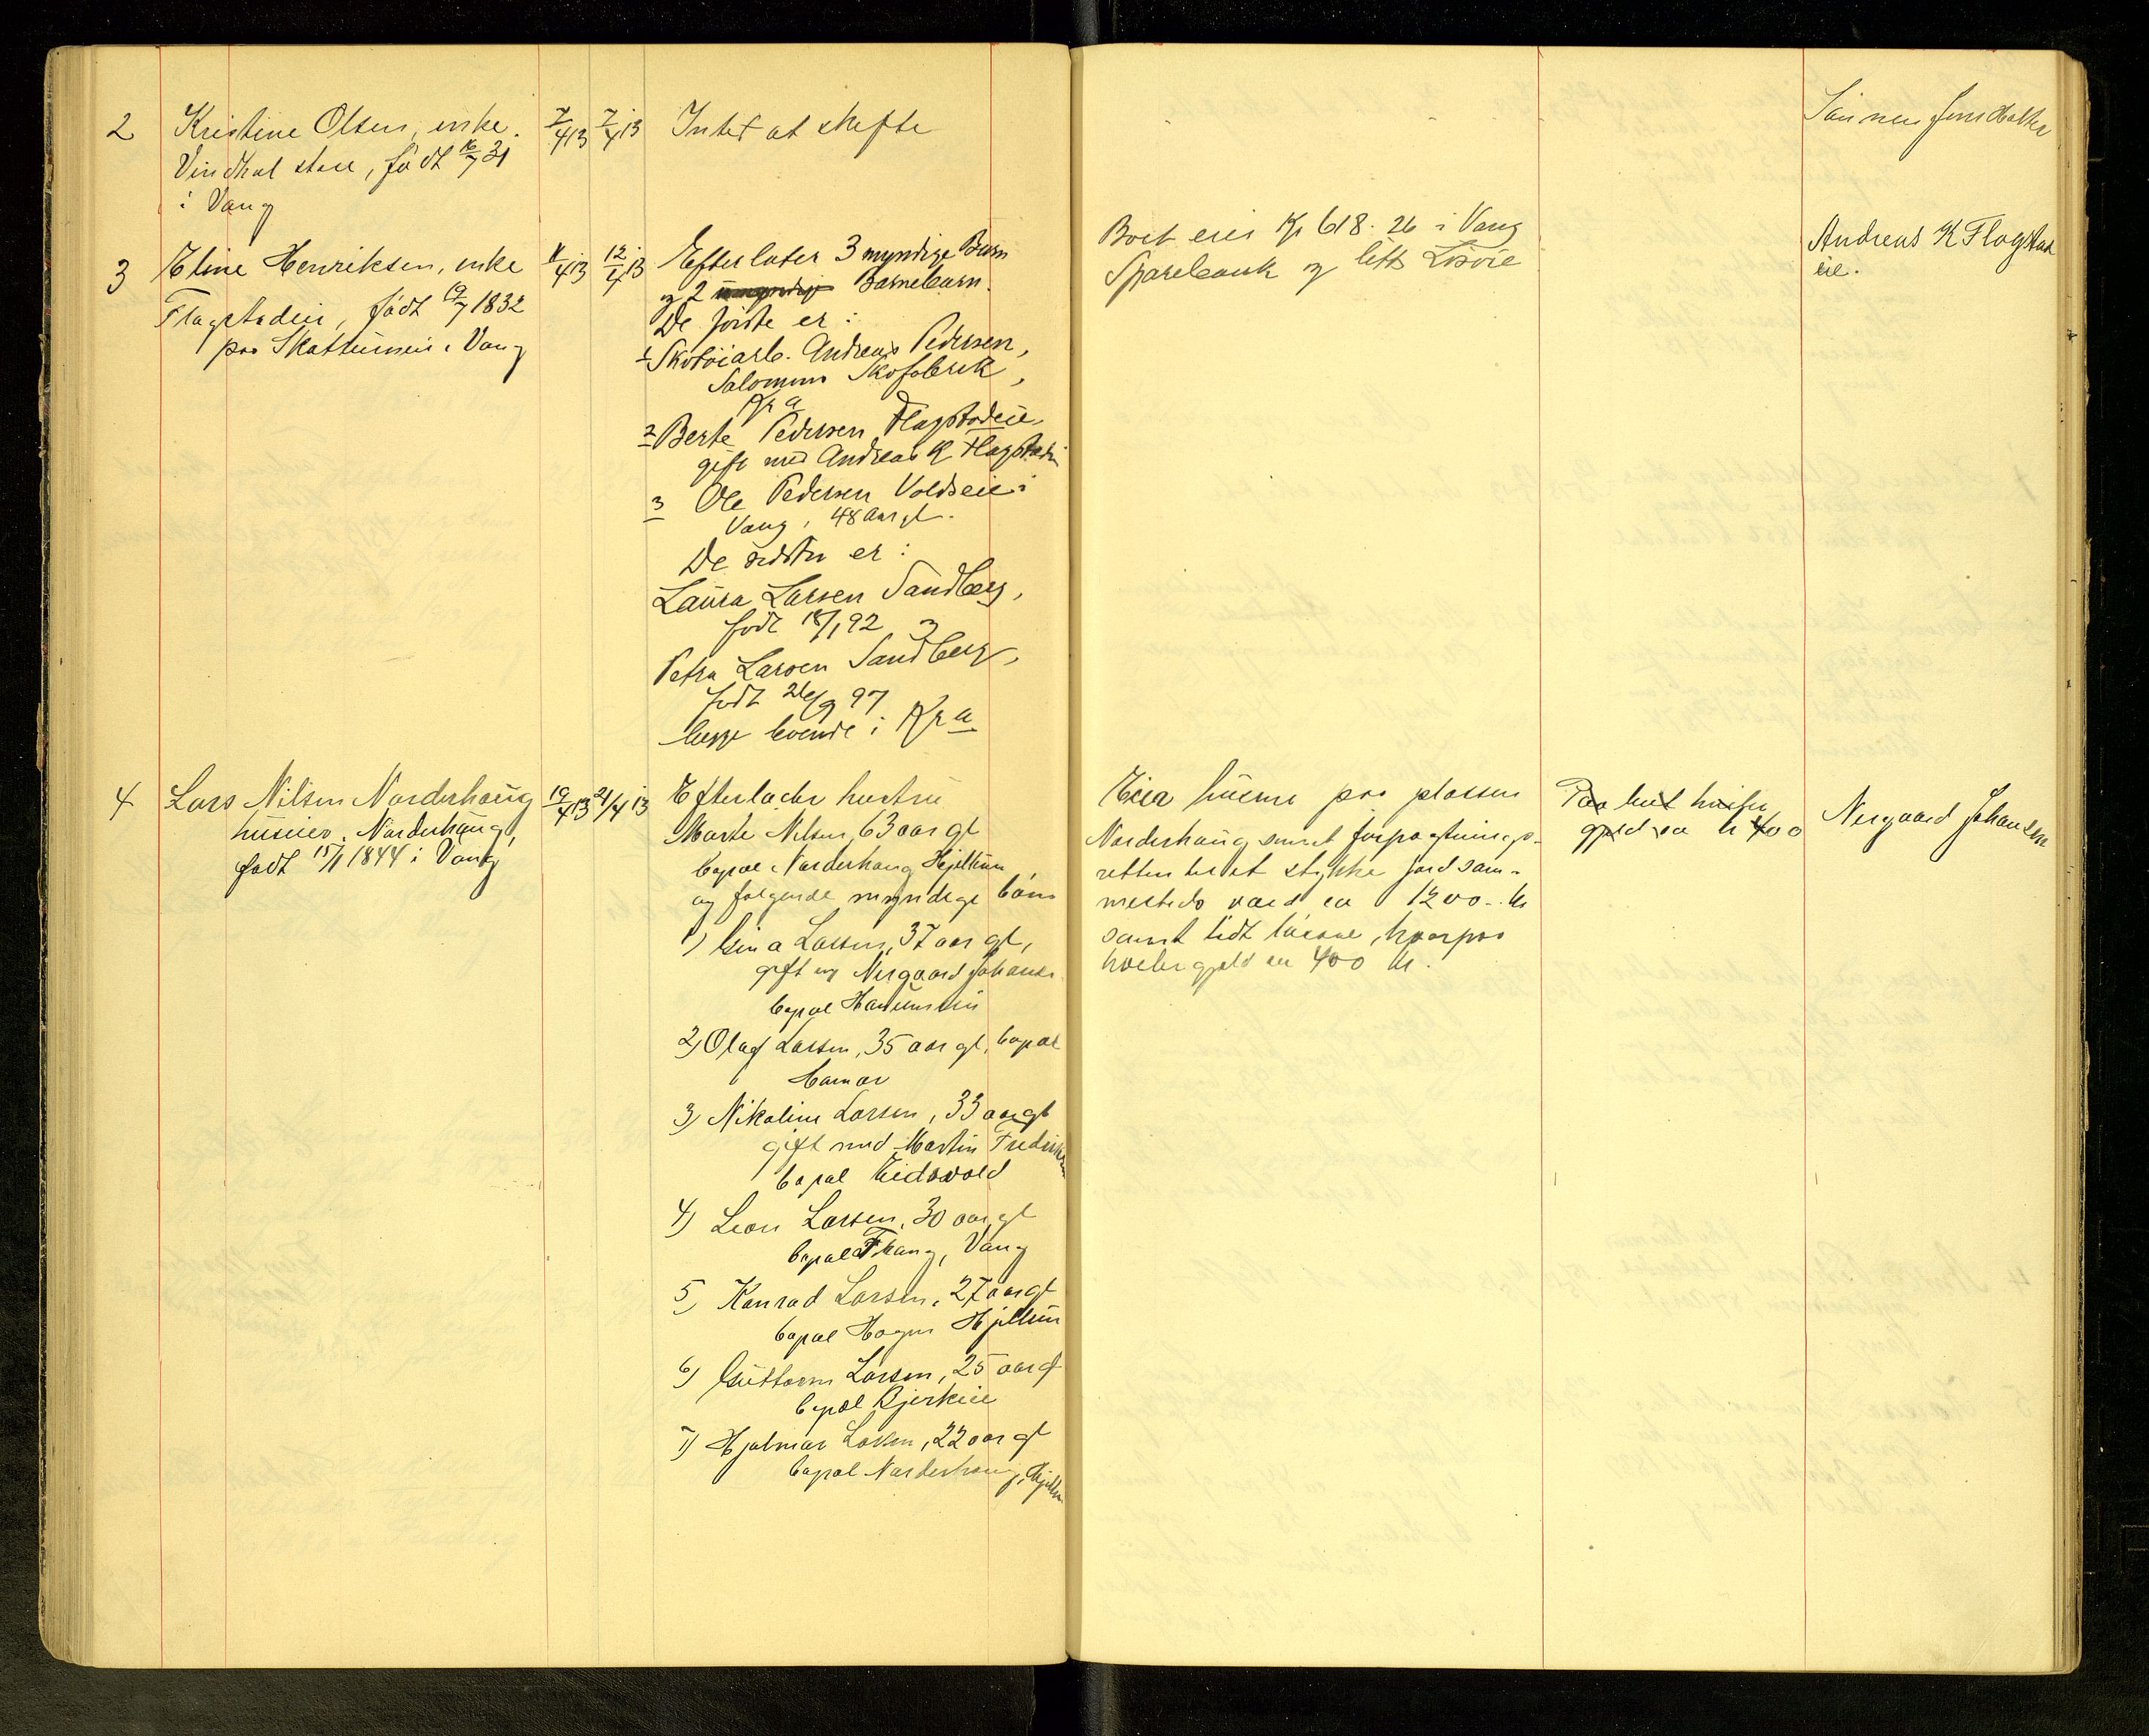 2 Kristine Olsen, enke. 7/4 13 7/4 13 Intet at skifte
Vindkal støre, født 16/7 31
i Vang
Sønnen Jens
3 Eline Henriksen, enke
Flagstadeie, født 19/7 1832
paa Skattumeie i Vang
12/4 13
Efterlater 3 myndige Barn
og 2 Barnebarn.
De første er:
1 Skotøiarb. Andreas Pedersen,
Salomons Skofabrik,
Kra
2 Berte Pedersen Flagstadeie,
gift med Andreas K Flagstadei
3 Ole Pedersen Voldseie i
Vang, 48 Aar gl.
De sidste er:
Laura Larsen Sandberg,
født 18/1 92 og
Petra Larsen Sandberg,
født 26/9 97
begge boende i Kra
Boet eier Kr 618.26 i Vang
Sparebank og litt Løsøre
Andreas K Flagstad
eie.
4 Lars Nilsen Norderhaug
huseier, Norderhaug,
født 15/11 1844 i Vang
19/4 13 21/4 13
Efterlader hustru
Marte Nilsen, 63 aar gl
bopæl Norderhaug Hjellum
og følgende myndige børn
1) Gina Larsen, 37 aar gl,
gift m Nergaard Johansen
bopæl
2) Olaf Larsen, 35 aar gl, bopæl
Hamar
3) Nikoline Larsen, 33 aar gl
gift med Martin Fredriksen
bopæl Eidsvold
4) Leon Larsen, 30 aar gl
bopæl Vang
5) Konrad Larsen, 27 aar gl
bopæl Hagen Hjellum
6) Guttorm Larsen, 25 aar gl
bopæl Bjerkeie
7) Hjalmar Larsen, 22 aar gl
bopæl Norderhaug, Hjellum
Eier husene paa plassen
Norderhaug samt forpagtnings-
retten til et stykke jord sam-
mesteds værd ca 1200.- kr
samt lidt løsøre, hvorpaa
hviler gjeld ca 400 kr.
Paa boet hviler
gjeld ca kr 400
Nergaard Johansen